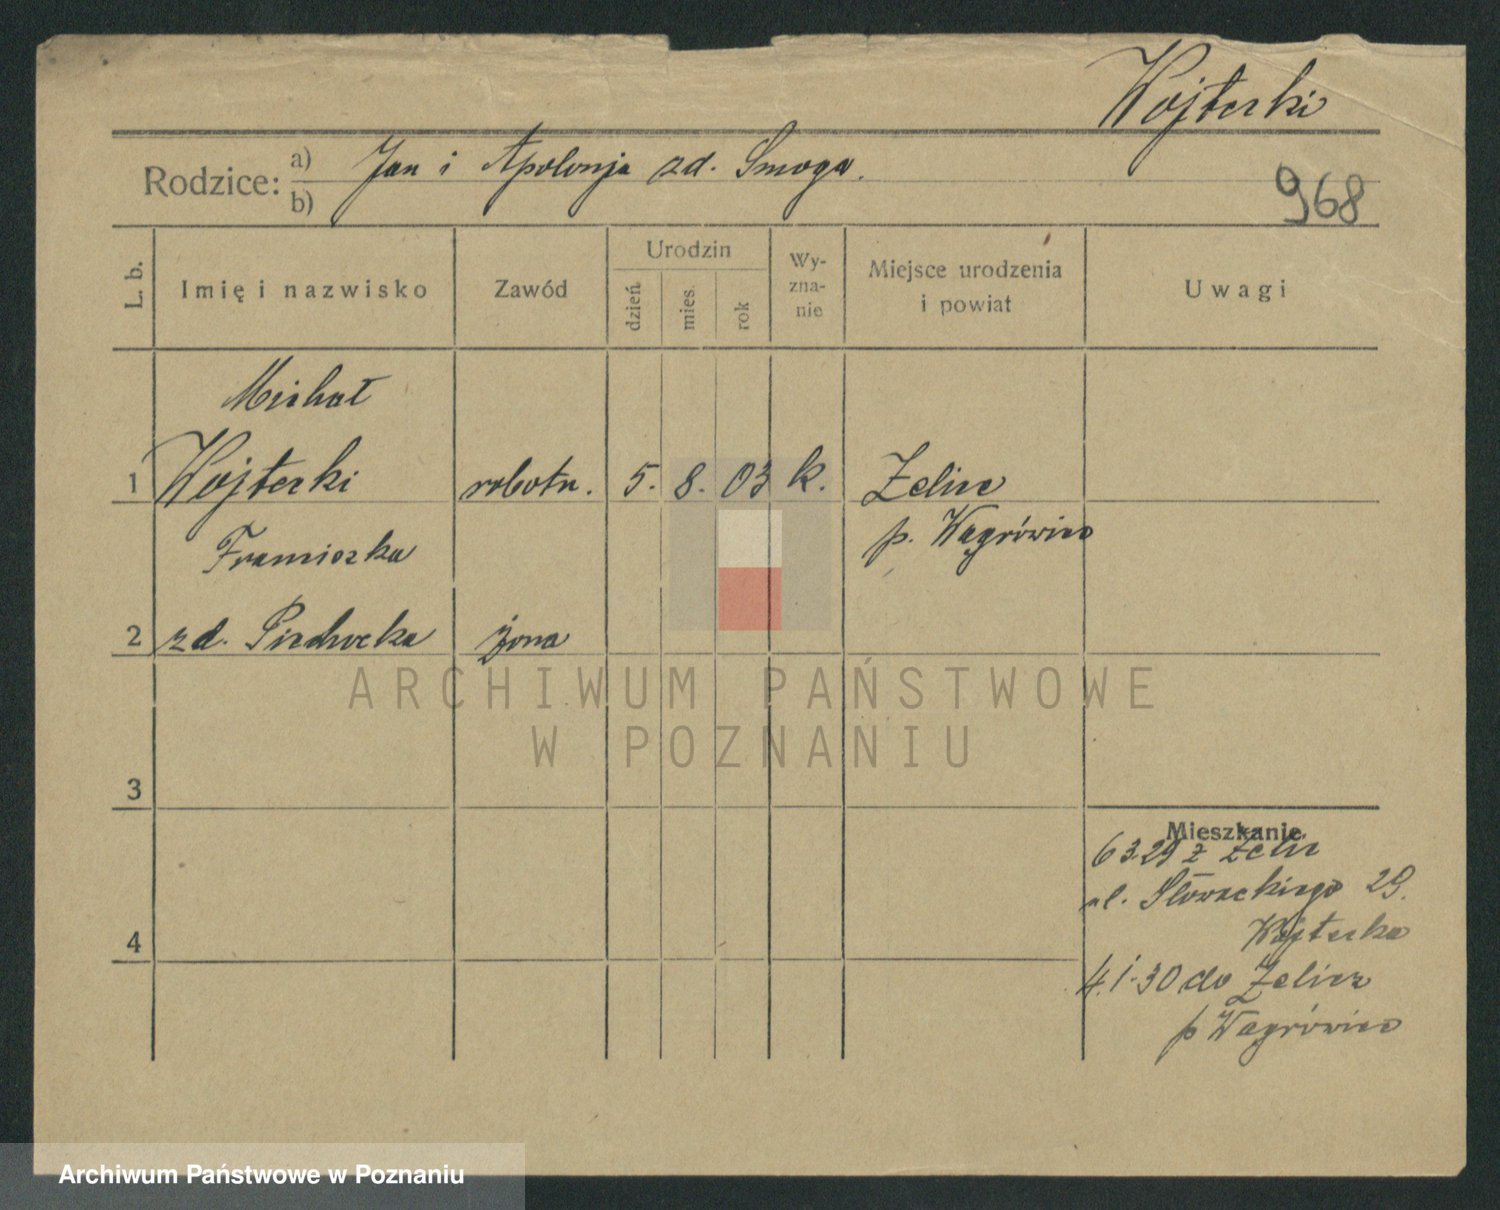 Wojterki
968
Rodzice: a) Jan i Apolonja zd. Smoga.
b)
L. b. Imię i nazwisko Zawód Urodzin dzień mies. rok Wy-zna-nie Miejsce urodzenia i powiat Uwagi
Michał
1 Wojterki robotn. 5. 8. 03 k. Zelice
Franciszka p. Wągrówiec
2 zd. Piechocka żona
3
4
Mieszkanie
6 3.29 z Zelic
ul. Słowackiego 29.
Wojterka
4.1.30 do Zelicz
p Wągrówiec
ARCHIWUM PAŃSTWOWE
W POZNANIU
Archiwum Państwowe w Poznaniu